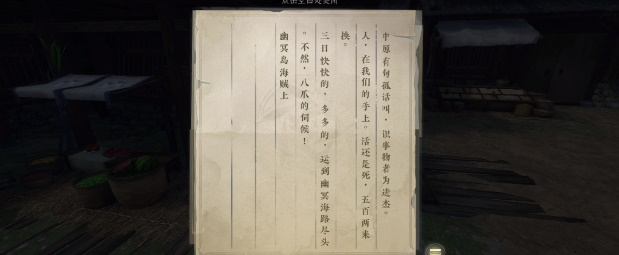 中愿有句孤话叫，识事物者为进杰。
人，在我们的手上。活还是死，五百两来
换。
三日快快的，多多的，运到幽冥海路尽头
。不然，八爪的伺候！
幽冥岛海贼上